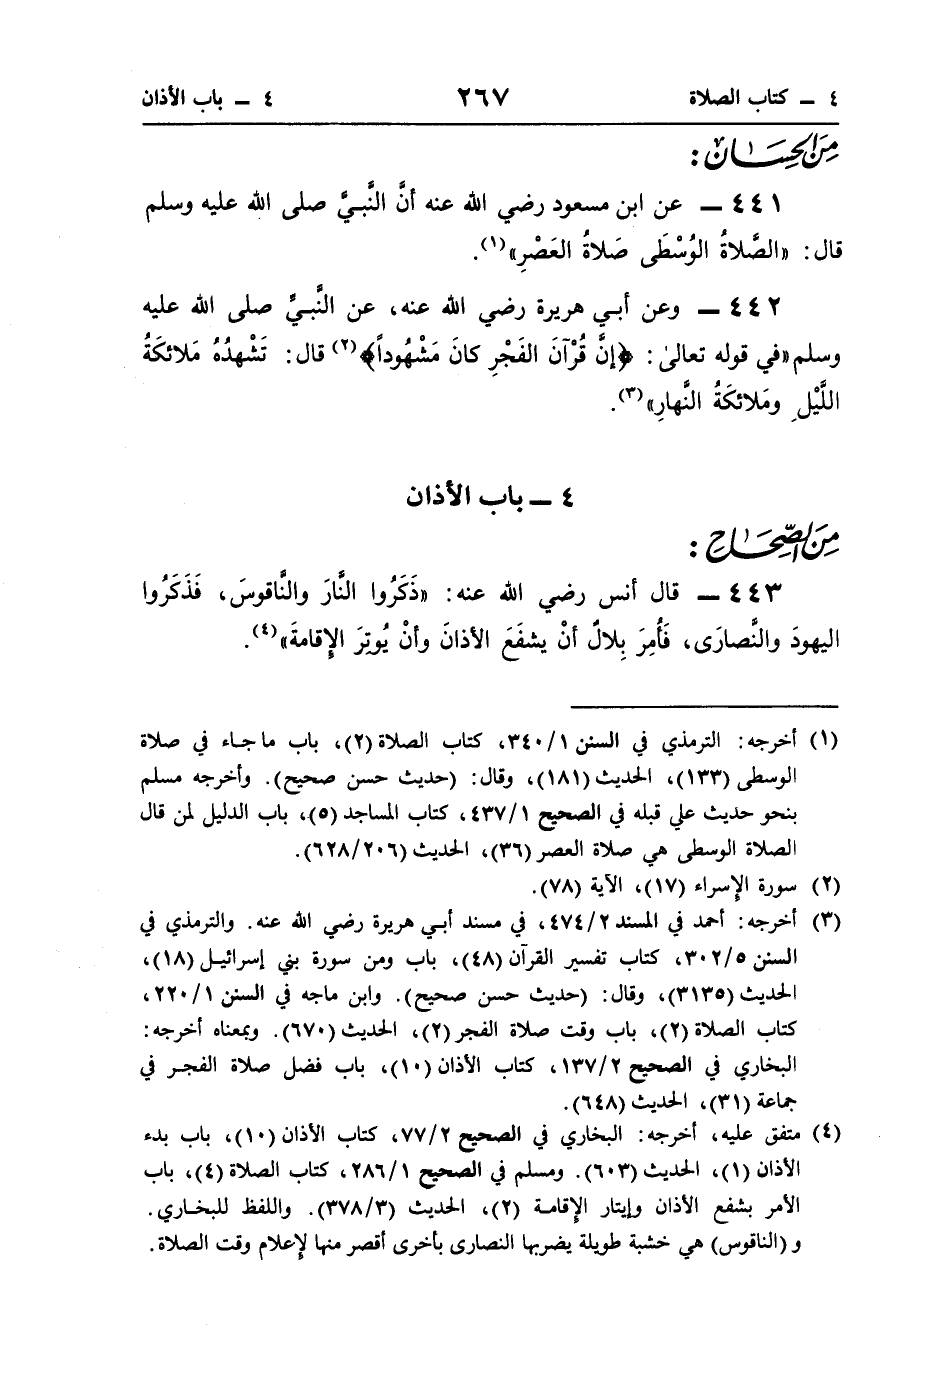 ٤ ــ كتاب الصلاة ٢٦٧ ٤ ــ باب الأذان
مِنَ الحِسَان :
٤٤١ ــ عن ابن مسعود رضي الله عنه أنَّ النَّبيَّ صلى الله عليه وسلم
قال: «الصَّلاةُ الوُسْطَى صَلاةُ العَصْرِ»(١).
٤٤٢ ــ وعن أبـي هريرة رضي الله عنه، عن النَّبيِّ صلى الله عليه
وسلم «في قوله تعالىٰ: ﴿إنَّ قُرْآنَ الفَجْرِ كانَ مَشْهُوداً﴾(٢) قال: تَشْهدُهُ مَلائكَةُ
اللَّيْلِ ومَلائكَةُ النَّهارِ»(٣).
٤ ــ باب الأذان
مِنَ الصِّحَاح :
٤٤٣ ــ قال أنس رضي الله عنه: «ذَكَرُوا النَّارَ والنَّاقوسَ، فَذَكَرُوا
اليهودَ والنَّصارَى، فَأُمِرَ بِلالٌ أنْ يشفَعَ الأذانَ وأنْ يُوتِرَ الإِقامةَ»(٤).
(١) أخرجه: الترمذي في السنن ٣٤٠/١، كتاب الصلاة (٢)، باب ما جاء في صلاة
الوسطى (١٣٣)، الحديث (١٨١)، وقال: (حديث حسن صحيح). وأخرجه مسلم
بنحو حديث علي قبله في الصحيح ٤٣٧/١، كتاب المساجد (٥)، باب الدليل لمن قال
الصلاة الوسطى هي صلاة العصر (٣٦)، الحديث (٦٢٨/٢٠٦).
(٢) سورة الإِسراء (١٧)، الآية (٧٨).
(٣) أخرجه: أحمد في المسند ٤٧٤/٢، في مسند أبـي هريرة رضي الله عنه. والترمذي في
السنن ٣٠٢/٥، كتاب تفسير القرآن (٤٨)، باب ومن سورة بني إسرائيل (١٨)،
الحديث (٣١٣٥)، وقال: (حديث حسن صحيح). وابن ماجه في السنن ٢٢٠/١،
كتاب الصلاة (٢)، باب وقت صلاة الفجر (٢)، الحديث (٦٧٠). وبمعناه أخرجه:
البخاري في الصحيح ١٣٧/٢، كتاب الأذان (١٠)، باب فضل صلاة الفجر في
جماعة (٣١)، الحديث (٦٤٨).
(٤) متفق عليه، أخرجه: البخاري في الصحيح ٧٧/٢، كتاب الأذان (١٠)، باب بدء
الأذان (١)، الحديث (٦٠٣). ومسلم في الصحيح ٢٨٦/١، كتاب الصلاة (٤)، باب
الأمر بشفع الأذان وإيتار الإِقامة (٢)، الحديث (٣٧٨/٣). واللفظ للبخاري.
و (الناقوس) هي خشبة طويلة يضربها النصارى بأخرى أقصر منها لإِعلام وقت الصلاة.